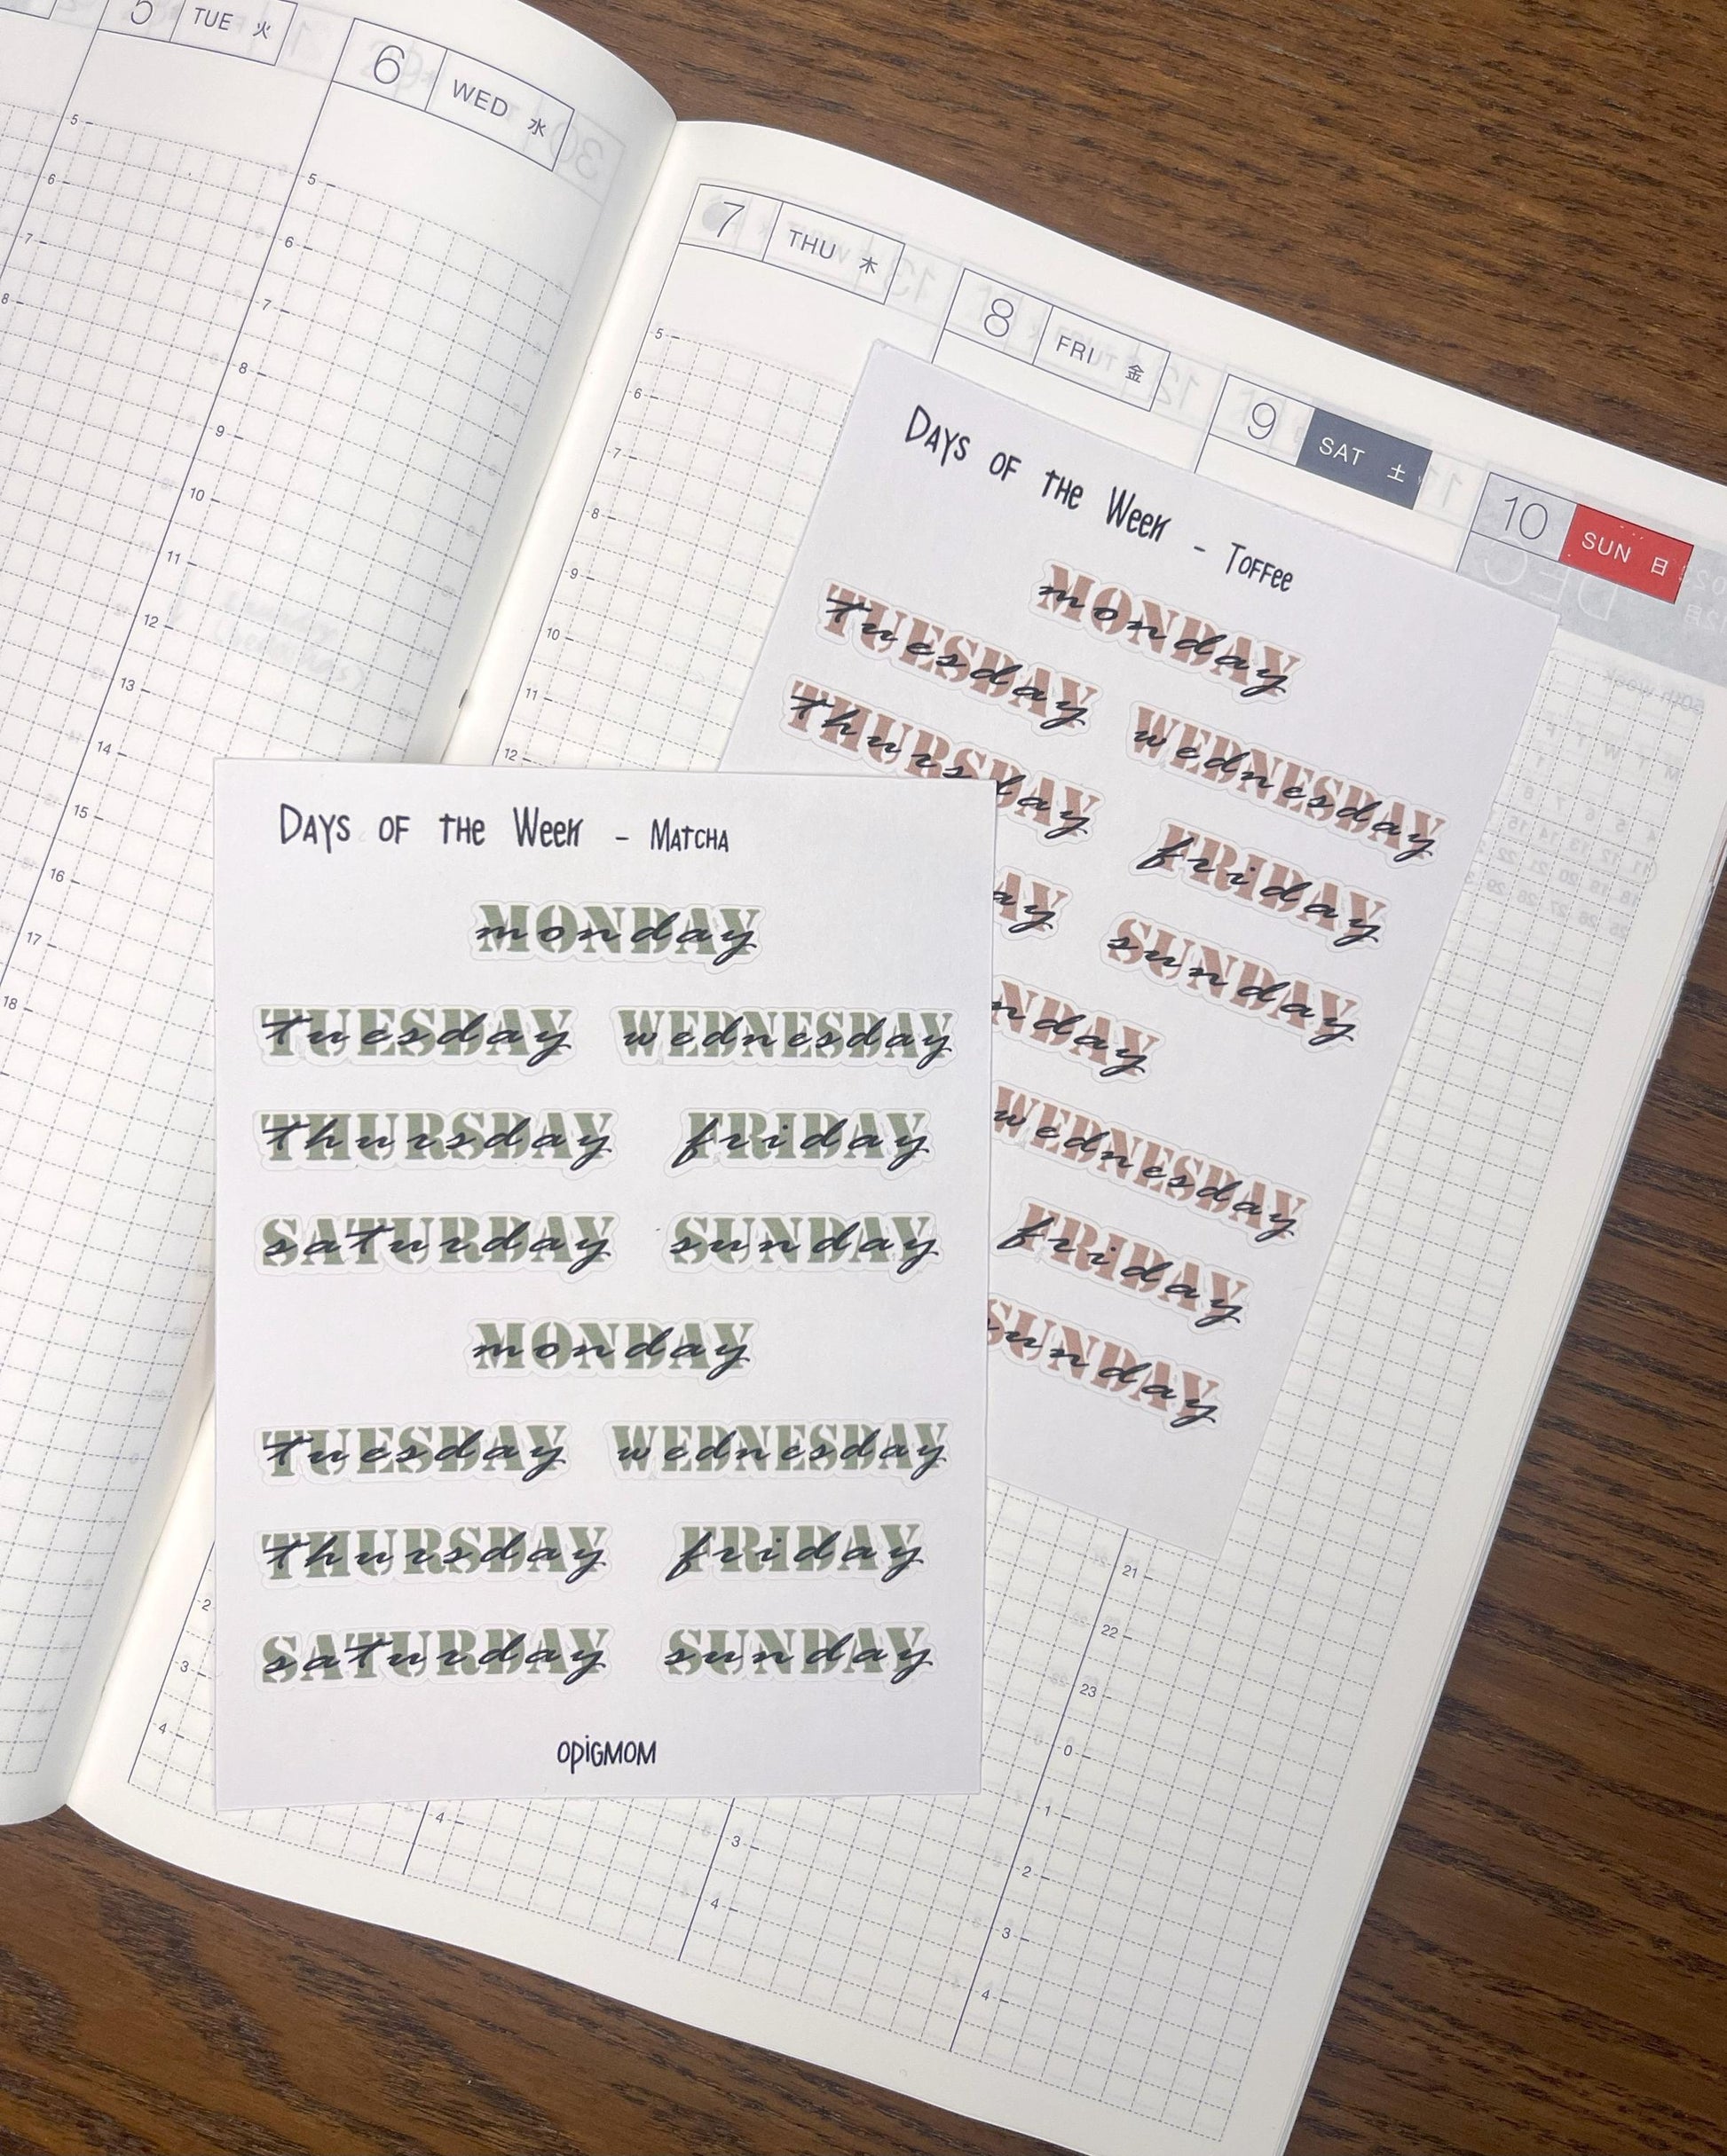 5 TUE 火
6 WED 水
7 THU 木
8 FRI 金
9 SAT 土
10 SUN 日
5
6
7
8
5
6
7
8
9
10
11
12
13
14
15
16
17
18
5
6
7
8
9
10
11
12
Days of the Week - Toffee
MONDAY monday
TUESDAY tuesday
WEDNESDAY wednesday
THURSDAY thursday
FRIDAY friday
AY ay
SUNDAY sunday
NDAY nday
WEDNESDAY wednesday
FRIDAY friday
SUNDAY sunday
Days of the Week - Matcha
MONDAY monday
TUESDAY tuesday WEDNESDAY wednesday
THURSDAY thursday FRIDAY friday
SATURDAY saturday SUNDAY sunday
MONDAY monday
TUESDAY tuesday WEDNESDAY wednesday
THURSDAY thursday FRIDAY friday
SATURDAY saturday SUNDAY sunday
OPIGMOM
2
3
4
4
3
4
21
22
23
0
1
2
3
4